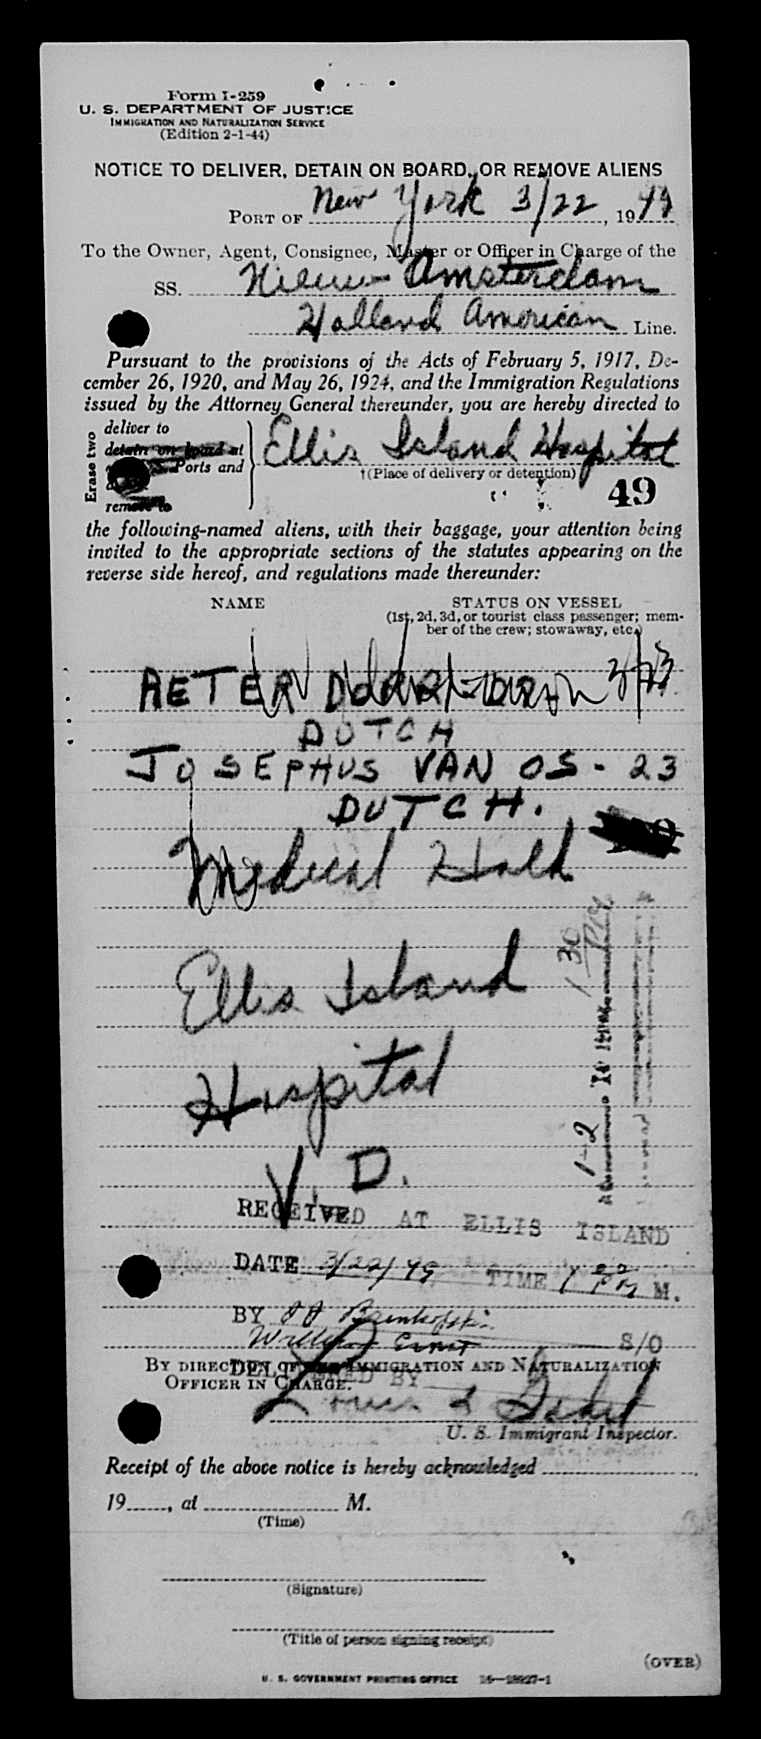 Form I-259
U. S. DEPARTMENT OF JUSTICE
IMMIGRATION AND NATURALIZATION SERVICE
(Edition 2-1-44)
NOTICE TO DELIVER, DETAIN ON BOARD, OR REMOVE ALIENS
PORT OF New York 3/22, 1949
To the Owner, Agent, Consignee, Master or Officer in Charge of the
SS. Nieuw Amsterdam
Holland American Line.
Pursuant to the provisions of the Acts of February 5, 1917, De-
cember 26, 1920, and May 26, 1924, and the Immigration Regulations
issued by the Attorney General thereunder, you are hereby directed to
Erase two
deliver to
detain on board at
Ports and
remove to
Ellis Island Hospital
†(Place of delivery or detention)
49
the following-named aliens, with their baggage, your attention being
invited to the appropriate sections of the statutes appearing on the
reverse side hereof, and regulations made thereunder:
NAME STATUS ON VESSEL
(1st, 2d, 3d, or tourist class passenger; mem-
ber of the crew; stowaway, etc.)
3/23
DUTCH
JOSEPHUS VAN OS - 23
DUTCH.
Medical Hold
Ellis Island
Hospital
V. D.
1 30 PM
1-2
RECEIVED AT ELLIS ISLAND
DATE 3/22/49 TIME 1 PM M.
BY
William Ernst S/O
BY DIRECTION OF THE IMMIGRATION AND NATURALIZATION
OFFICER IN CHARGE.
DELIVERED BY
Louis
U. S. Immigrant Inspector.
Receipt of the above notice is hereby acknowledged
19, at M.
(Time)
(Signature)
(Title of person signing receipt)
(OVER)
U. S. GOVERNMENT PRINTING OFFICE 16—18927-1